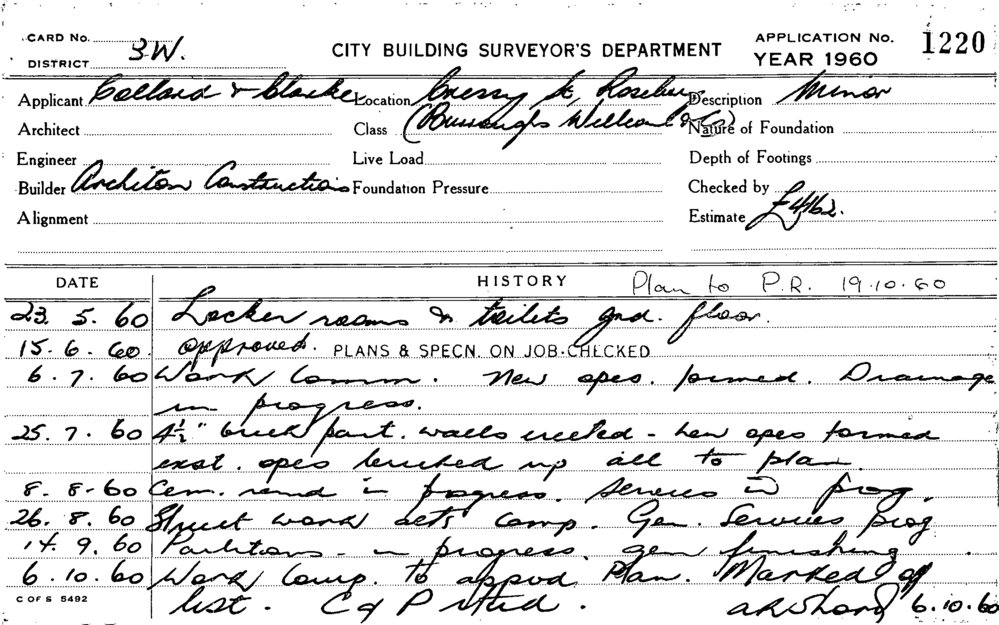 CARD No.
DISTRICT 3W.
CITY BUILDING SURVEYOR'S DEPARTMENT
APPLICATION No. 1220
YEAR 1960
Applicant Collard & Clarke Location Cressy St, Rosebery Description Minor
Architect Class (Burroughs Wellcome & Co) Nature of Foundation
Engineer Live Load Depth of Footings
Builder Architon Constructions Foundation Pressure Checked by
Alignment Estimate £4162.
DATE HISTORY Plan to P.R. 19.10.60
23. 5. 60 Locker rooms & toilets gnd. floor.
15. 6. 60. approved. PLANS & SPECN. ON JOB CHECKED
6. 7. 60 Work Comm. New opes. formed. Drainage
in progress.
25. 7. 60 4½" brick part. walls erected - new opes formed
exist. opes bricked up all to plan.
8. 8-60 Cem. rend in progress. Services in prog.
26. 8. 60 Struct work comp. Gen. Services prog
14. 9. 60 Partitions - in progress, gen finishing.
6. 10. 60 Work Comp. to appvd Plan. Marked off
list. C of P 6.10.60
C OF S 5492